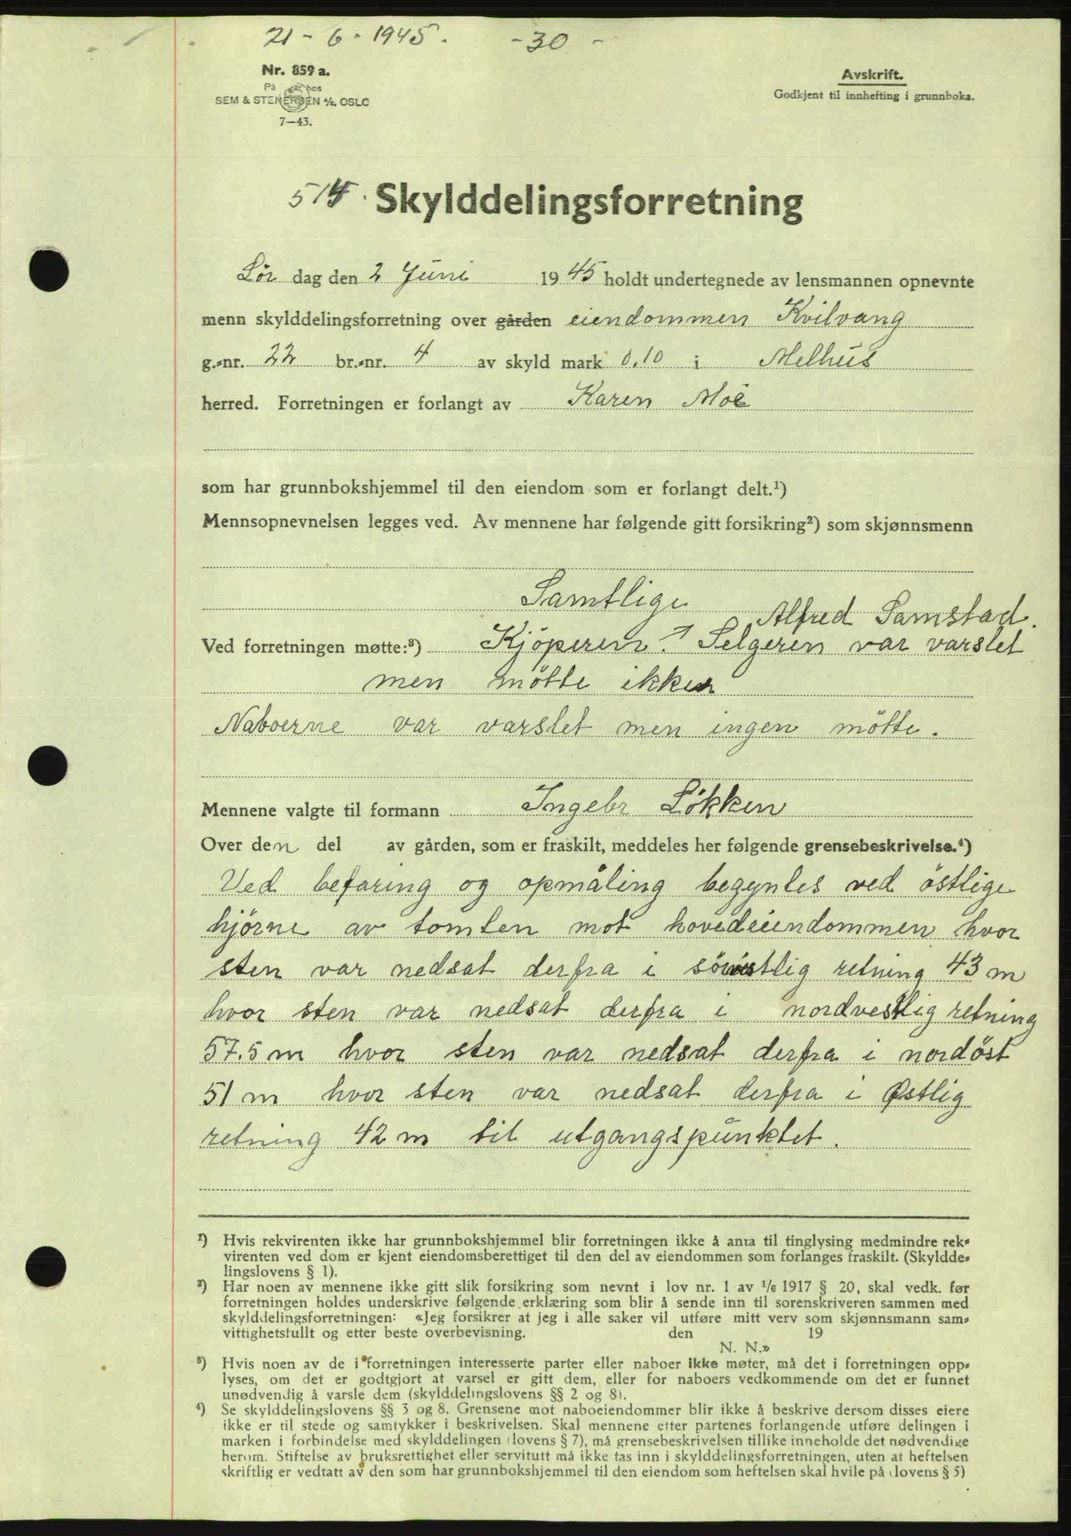 21 - 6 - 1945. - 30 -
Nr. 859 a.
Avskrift.
SEM & STENERSEN A/S, OSLO
Godkjent til innhefting i grunnboka.
7—43.
514. Skylddelingsforretning
Lør dag den 2 Juni 1945 holdt undertegnede av lensmannen opnevnte
menn skylddelingsforretning over gården eiendommen Kvilvang
g.-nr. 22 br.-nr. 4 av skyld mark 0.10 i Melhus
herred. Forretningen er forlangt av Karen Moe
som har grunnbokshjemmel til den eiendom som er forlangt delt.¹)
Mennsopnevnelsen legges ved. Av mennene har følgende gitt forsikring²) som skjønnsmenn
Samtlige
Alfred Samstad.
Ved forretningen møtte:³) Kjöperen. Selgeren var varslet
men mötte ikke
Naboerne var varslet men ingen mötte.
Mennene valgte til formann Ingebr Lökken
Over den del av gården, som er fraskilt, meddeles her følgende grensebeskrivelse.⁴)
Ved befaring og opmåling begyntes ved östlige
hjörne av tomten mot hovedeiendommen hvor
sten var nedsat derfra i retning 43 m
hvor sten var nedsat derfra i nordvestlig retning
57.5 m hvor sten var nedsat derfra i nordöst
51 m hvor sten var nedsat derfra i Østlig
retning 42 m til utgangspunktet.
¹) Hvis rekvirenten ikke har grunnbokshjemmel blir forretningen ikke å anta til tinglysing medmindre rek-
virenten ved dom er kjent eiendomsberettiget til den del av eiendommen som forlanges fraskilt. (Skyldde-
lingslovens § 1).
²) Har noen av mennene ikke gitt slik forsikring som nevnt i lov nr. 1 av 1/6 1917 § 20, skal vedk. før
forretningen holdes underskrive følgende erklæring som blir å sende inn til sorenskriveren sammen med
skylddelingsforretningen: «Jeg forsikrer at jeg i alle saker vil utføre mitt verv som skjønnsmann sam-
vittighetsfullt og etter beste overbevisning. den 19
N. N.»
³) Hvis noen av de i forretningen interesserte parter eller naboer ikke møter, må det i forretningen opp-
lyses, om det er godtgjort at varsel er gitt dem, eller for naboers vedkommende om det er funnet
unødvendig å varsle dem (skylddelingslovens §§ 2 og 8).
⁴) Se skylddelingslovens §§ 3 og 8. Grensene mot naboeiendommer blir ikke å beskrive dersom disses eiere
ikke er til stede og samtykker i beskrivelsen. Skal mennene etter partenes forlangende utføre delingen i
marken i forbindelse med skylddelingen (lovens § 7), må grensebeskrivelsen tillike inneholde det nødvendige
herom. Stiftelse av bruksrettighet eller servitutt må ikke tas inn i skylddelingsforretningen, uten at heftelsen
skriftlig er vedtatt av den som har grunnbokshjemmel til den eiendom som heftelsen skal hvile på (lovens § 5)